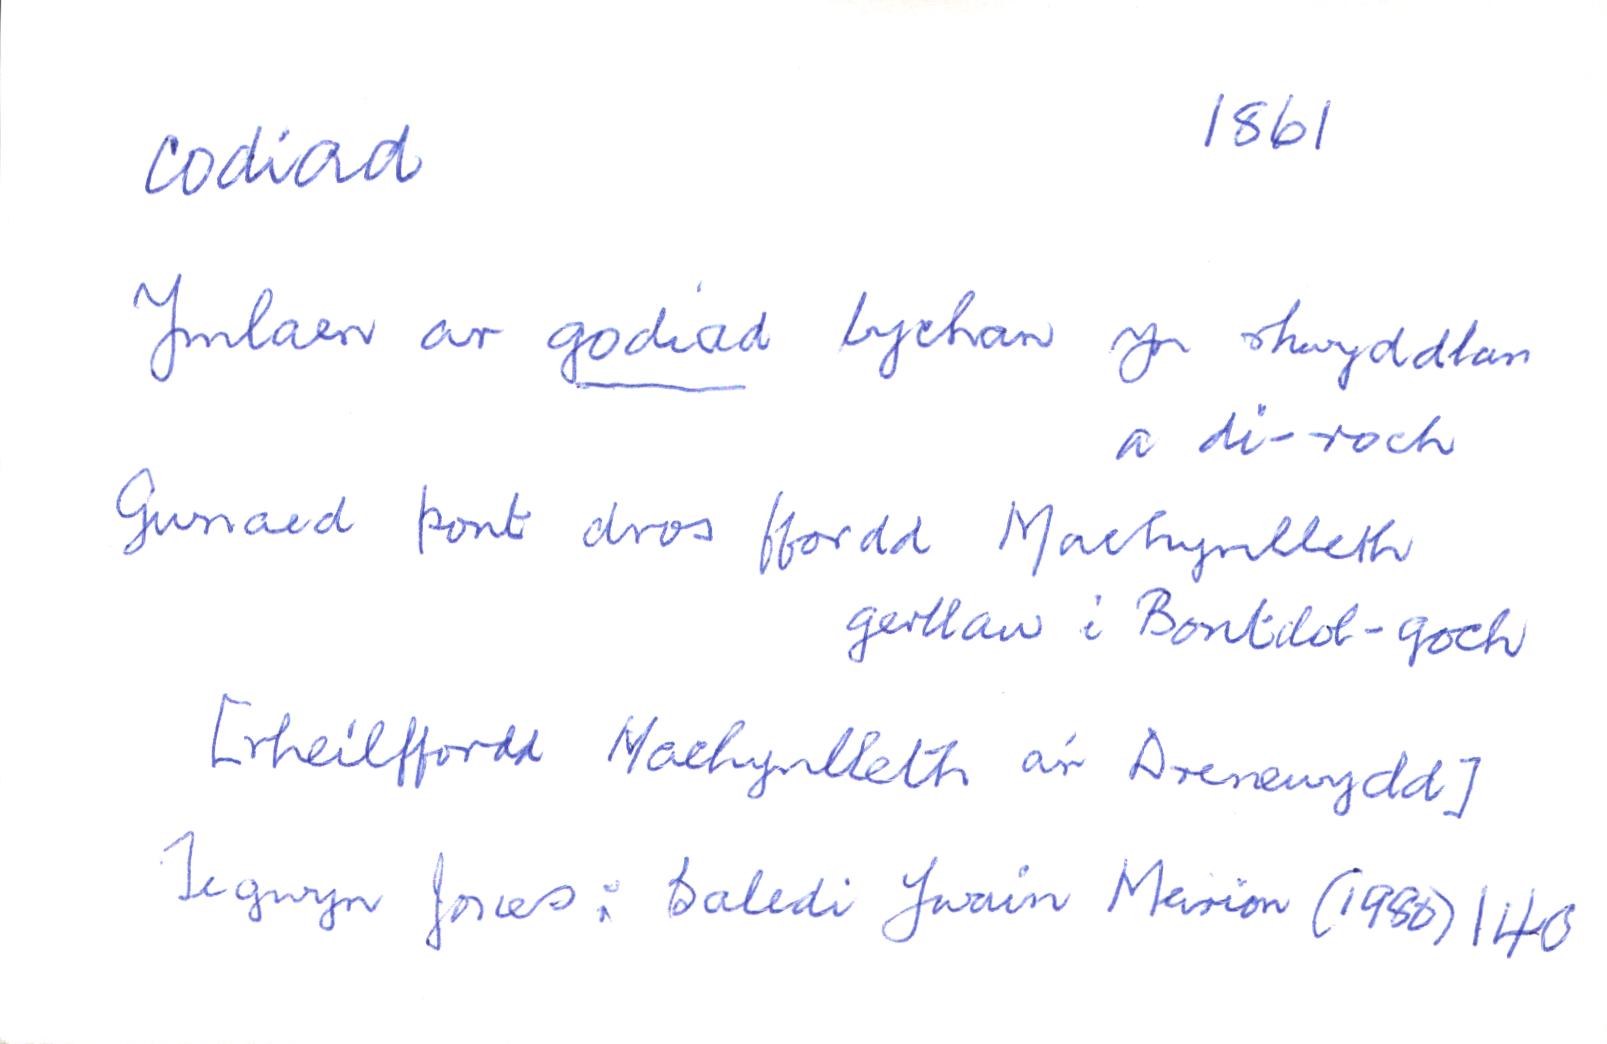 codiad 1861
Ymlaen ar godiad bychan yn rhwyddlan
a di-roch
Gwnaed pont dros ffordd Machynlleth
gerllaw i Bontdol-goch
[rheilffordd Machynlleth a'r Drenewydd]
Tegwyn Jones: Baledi Ywain Meirion (1980) 140